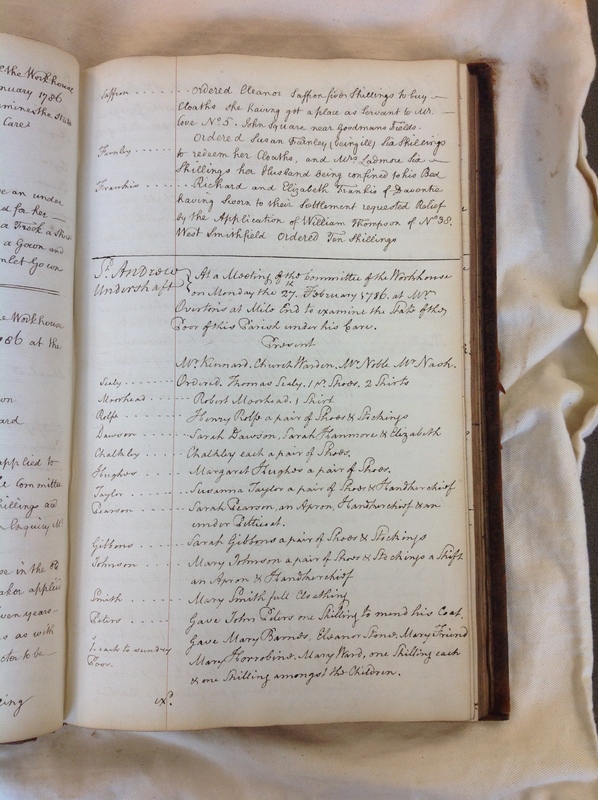 the Workhouse
nuary 1786
amine the State
Care
e an under
d for her
a Frock a Shirt
a Gown and
nlet Gown
e Workhouse
786 at the
on
ard
applied to
e Committee
hillings and
Enquiry Mr
se in the
aker applied
even years
s as with
ctor to be
cing
Saffron ..... Ordered Eleanor Saffron five Shillings to buy
Cloaths she having got a place as Servant to Mr.
Cove No. 5. John Square near Goodmans Fields.
Ordered Susan Farnley (being ill) Six Shillings
Farnley ..... to redeem her Cloaths, and Mrs. Ladmore Six
Shillings her Husband being confined to his Bed
Frankis ..... Richard and Elizabeth Frankis of
having Sworn to their Settlement requested Relief
by the Application of William Thompson of No. 38.
West Smithfield Ordered Ten Shillings
St. Andrew Undershaft } At a Meeting of the Committee of the Workhouse
on Monday the 27th. February 1786. at Mr.
Overtons at Mile End to examine the State of the
Poor of this Parish under his Care.
Present
Mr. Kinnard. Church Warden. Mr. Noble Mr. Nash.
Sealy ..... Ordered. Thomas Sealy. 1 pr. Shoes. 2 Shirts
Moorhead ..... Robert Moorhead. 1 Shirt
Rolfe ..... Henry Rolfe a pair of Shoes & Stockings
Dawson ..... Sarah Dawson, Sarah Hanmore & Elizabeth
Chalkley ..... Chalkley each a pair of Shoes.
Hughes ..... Margaret Hughes a pair of Shoes.
Taylor ..... Susanna Taylor a pair of Shoes & Handkerchief
Pearson ..... Sarah Pearson, an Apron, Handkerchief & an
under Petticoat.
Gibbons ..... Sarah Gibbons a pair of Shoes & Stockings
Johnson ..... Mary Johnson a pair of Shoes & Stockings a Shift
an Apron & Handkerchief
Smith ..... Mary Smith full Cloathing
Peters ..... Gave John Peters one Shilling to mend his Coat
1. each to sundry Poor. Gave Mary Barnes, Eleanor Stone, Mary Friend
Mary Horrobine, Mary Ward, one Shilling each
& one Shilling amongst the Children.
exd.